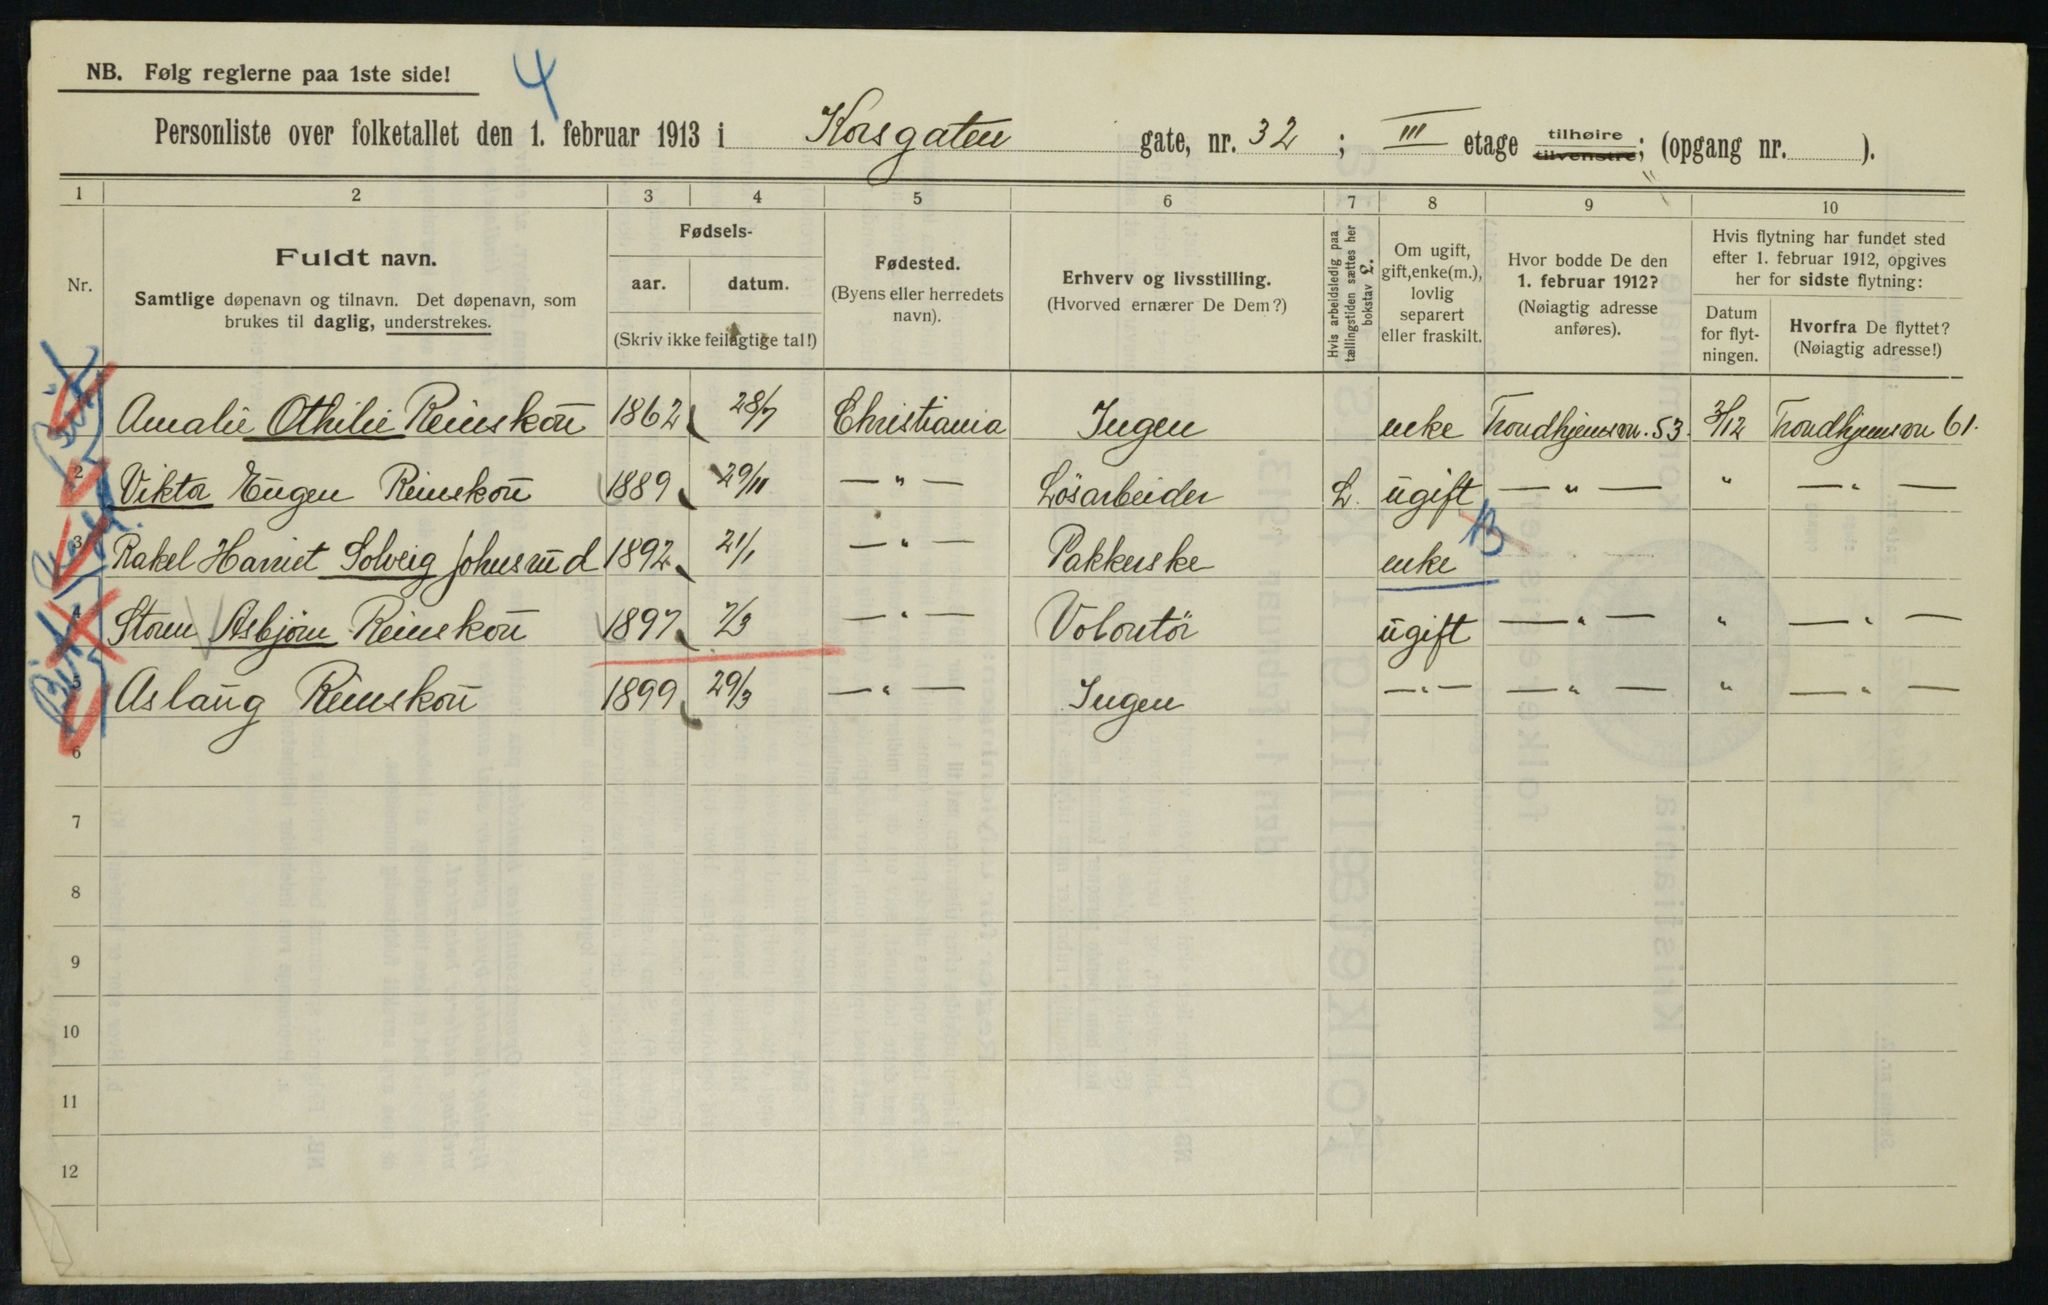 NB. Følg reglerne paa 1ste side!
4
Personliste over folketallet den 1. februar 1913 i Korsgaten gate, nr. 32 ; III etage tilhøire tilvenstre; (opgang nr. ).
1 2 3 4 5 6 7 8 9 10
Nr.
Fuldt navn.
Samtlige døpenavn og tilnavn. Det døpenavn, som
brukes til daglig, understrekes.
Fødsels-
aar. datum.
(Skriv ikke feilagtige tal!)
Fødested.
(Byens eller herredets
navn).
Erhverv og livsstilling.
(Hvorved ernærer De Dem?)
Hvis arbeidsledig paa
tællingstiden sættes her
bokstav L.
Om ugift,
gift, enke(m.),
lovlig
separert
eller fraskilt.
Hvor bodde De den
1. februar 1912?
(Nøiagtig adresse
anføres).
Hvis flytning har fundet sted
efter 1. februar 1912, opgives
her for sidste flytning:
Datum
for flyt-
ningen.
Hvorfra De flyttet?
(Nøiagtig adresse!)
Amalie Othilie Reinskou 1862 28/7 Christiania Ingen enke Trondhjemsvn. 53. 3/12 Trondhjemsvn 61.
2 Viktor Eugen Reinskou 1889 29/11 — " — Lösarbeider L. ugift — " — " — " —
3 Rakel Harriet Solveig Johnsrud 1892 21/1 — " — Pakkerske enke
4 Storm Asbjørn Reinskou 1897 7/3 — " — Volontör ugift — " — " — " —
5 Aslaug Reinskou 1899 29/3 — " — Ingen — " — — " — " — " —
6
7
8
9
10
11
12